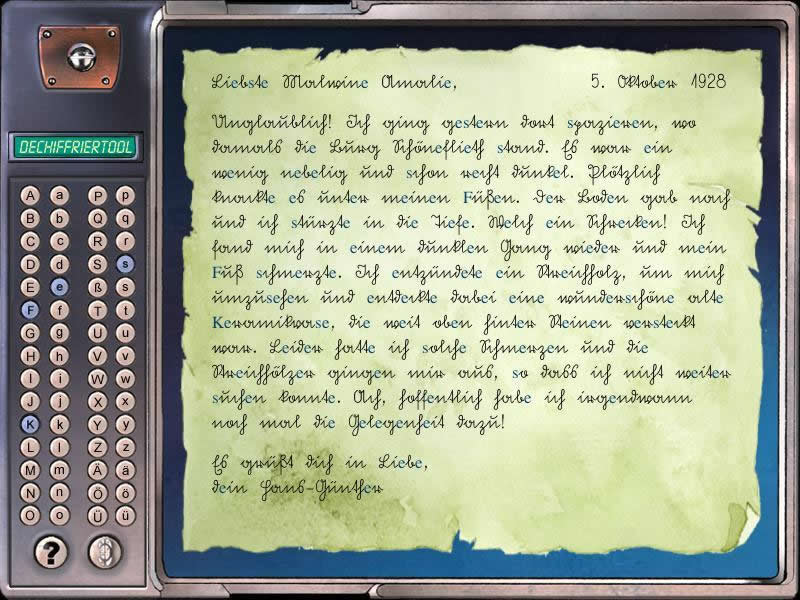 DECHIFFRIERTOOL
A a P p
B b Q q
C c R r
D d S s
E e ß s
F f T t
G g U u
H h V v
I i W w
J j X x
K k Y y
L l Z z
M m Ä ä
N n Ö ö
O o Ü ü
?
Liebste Malwine Amalie, 5. Oktober 1928
Unglaublich! Ich ging gestern dort spazieren, wo
damals die Burg Schöneflieth stand. Es war ein
wenig nebelig und schon recht dunkel. Plötzlich
knackte es unter meinen Füßen. Der Boden gab nach
und ich stürzte in die Tiefe. Welch ein Schrecken! Ich
fand mich in einem dunklen Gang wieder und mein
Fuß schmerzte. Ich entzündete ein Streichholz, um mich
umzusehen und entdeckte dabei eine wunderschöne alte
Keramikvase, die weit oben hinter Steinen versteckt
war. Leider hatte ich solche Schmerzen und die
Streichhölzer gingen mir aus, so dass ich nicht weiter
suchen konnte. Ach, hoffentlich habe ich irgendwann
noch mal die Gelegenheit dazu!
Es grüßt dich in Liebe,
dein Hans-Günther